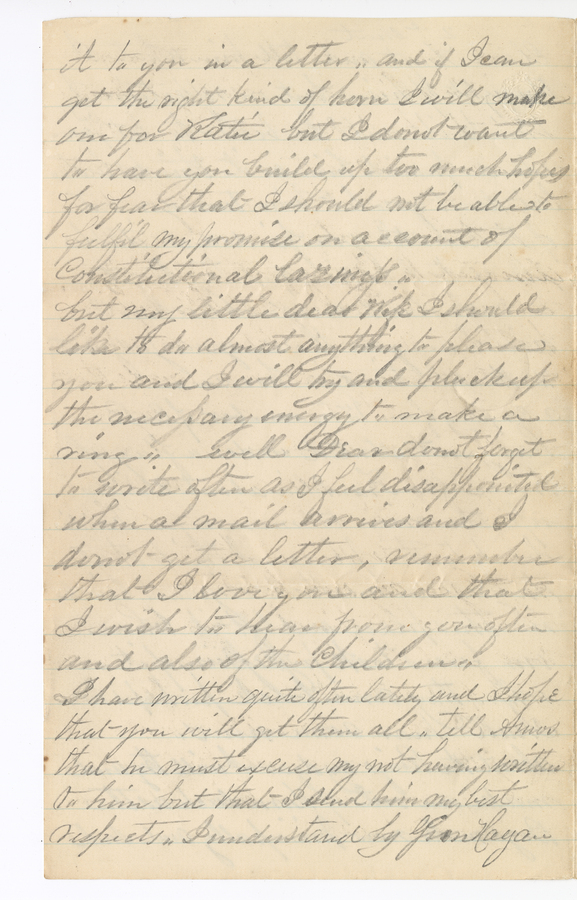 it to you in a letter ,, and if I can
get the right kind of horn I will make
one for Katie but I donot want
to have you build up too much hopes
for fear that I should not be able to
fulfil my promise on account of
Constitutional Laziness ,,
but my little dear Wife I should
like to do almost anything to please
you and I will try and pluck up
the necessary energy to make a
ring ,, well Dear donot forget
to write often as I feel disappointed
when a mail arrives and I
donot get a letter, remember
that I love you and that
I wish to hear from you often
and also of the Children ,,
I have written quite often lately and I hope
that you will get them all ,, tell Amos
that he must excuse my not having written
to him but that I send him my best
respects ,, I understand by Hagan